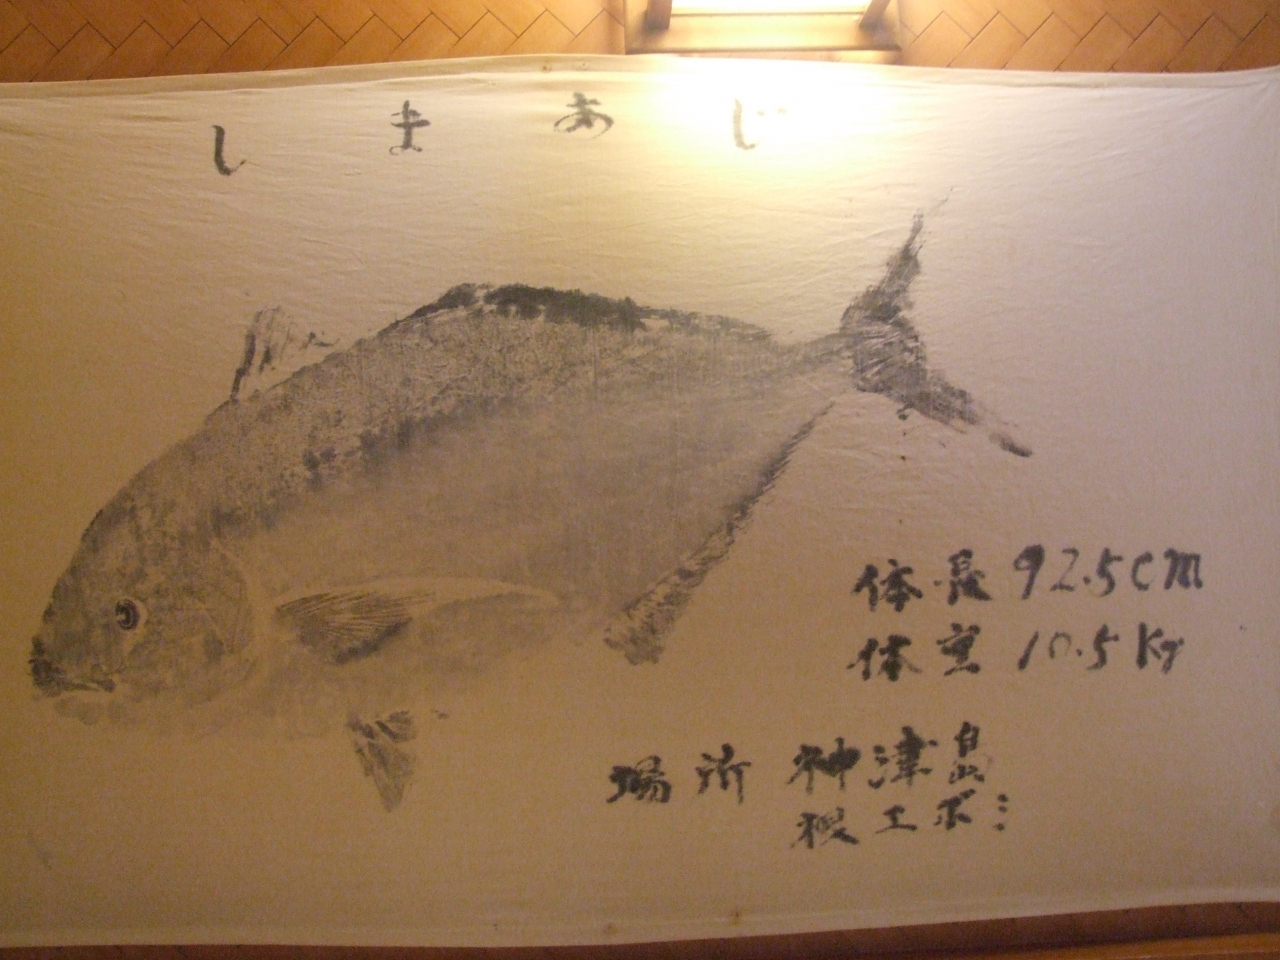 しまあじ
体長 92.5cm
体重 10.5Kg
場所 神津島
根エボシ